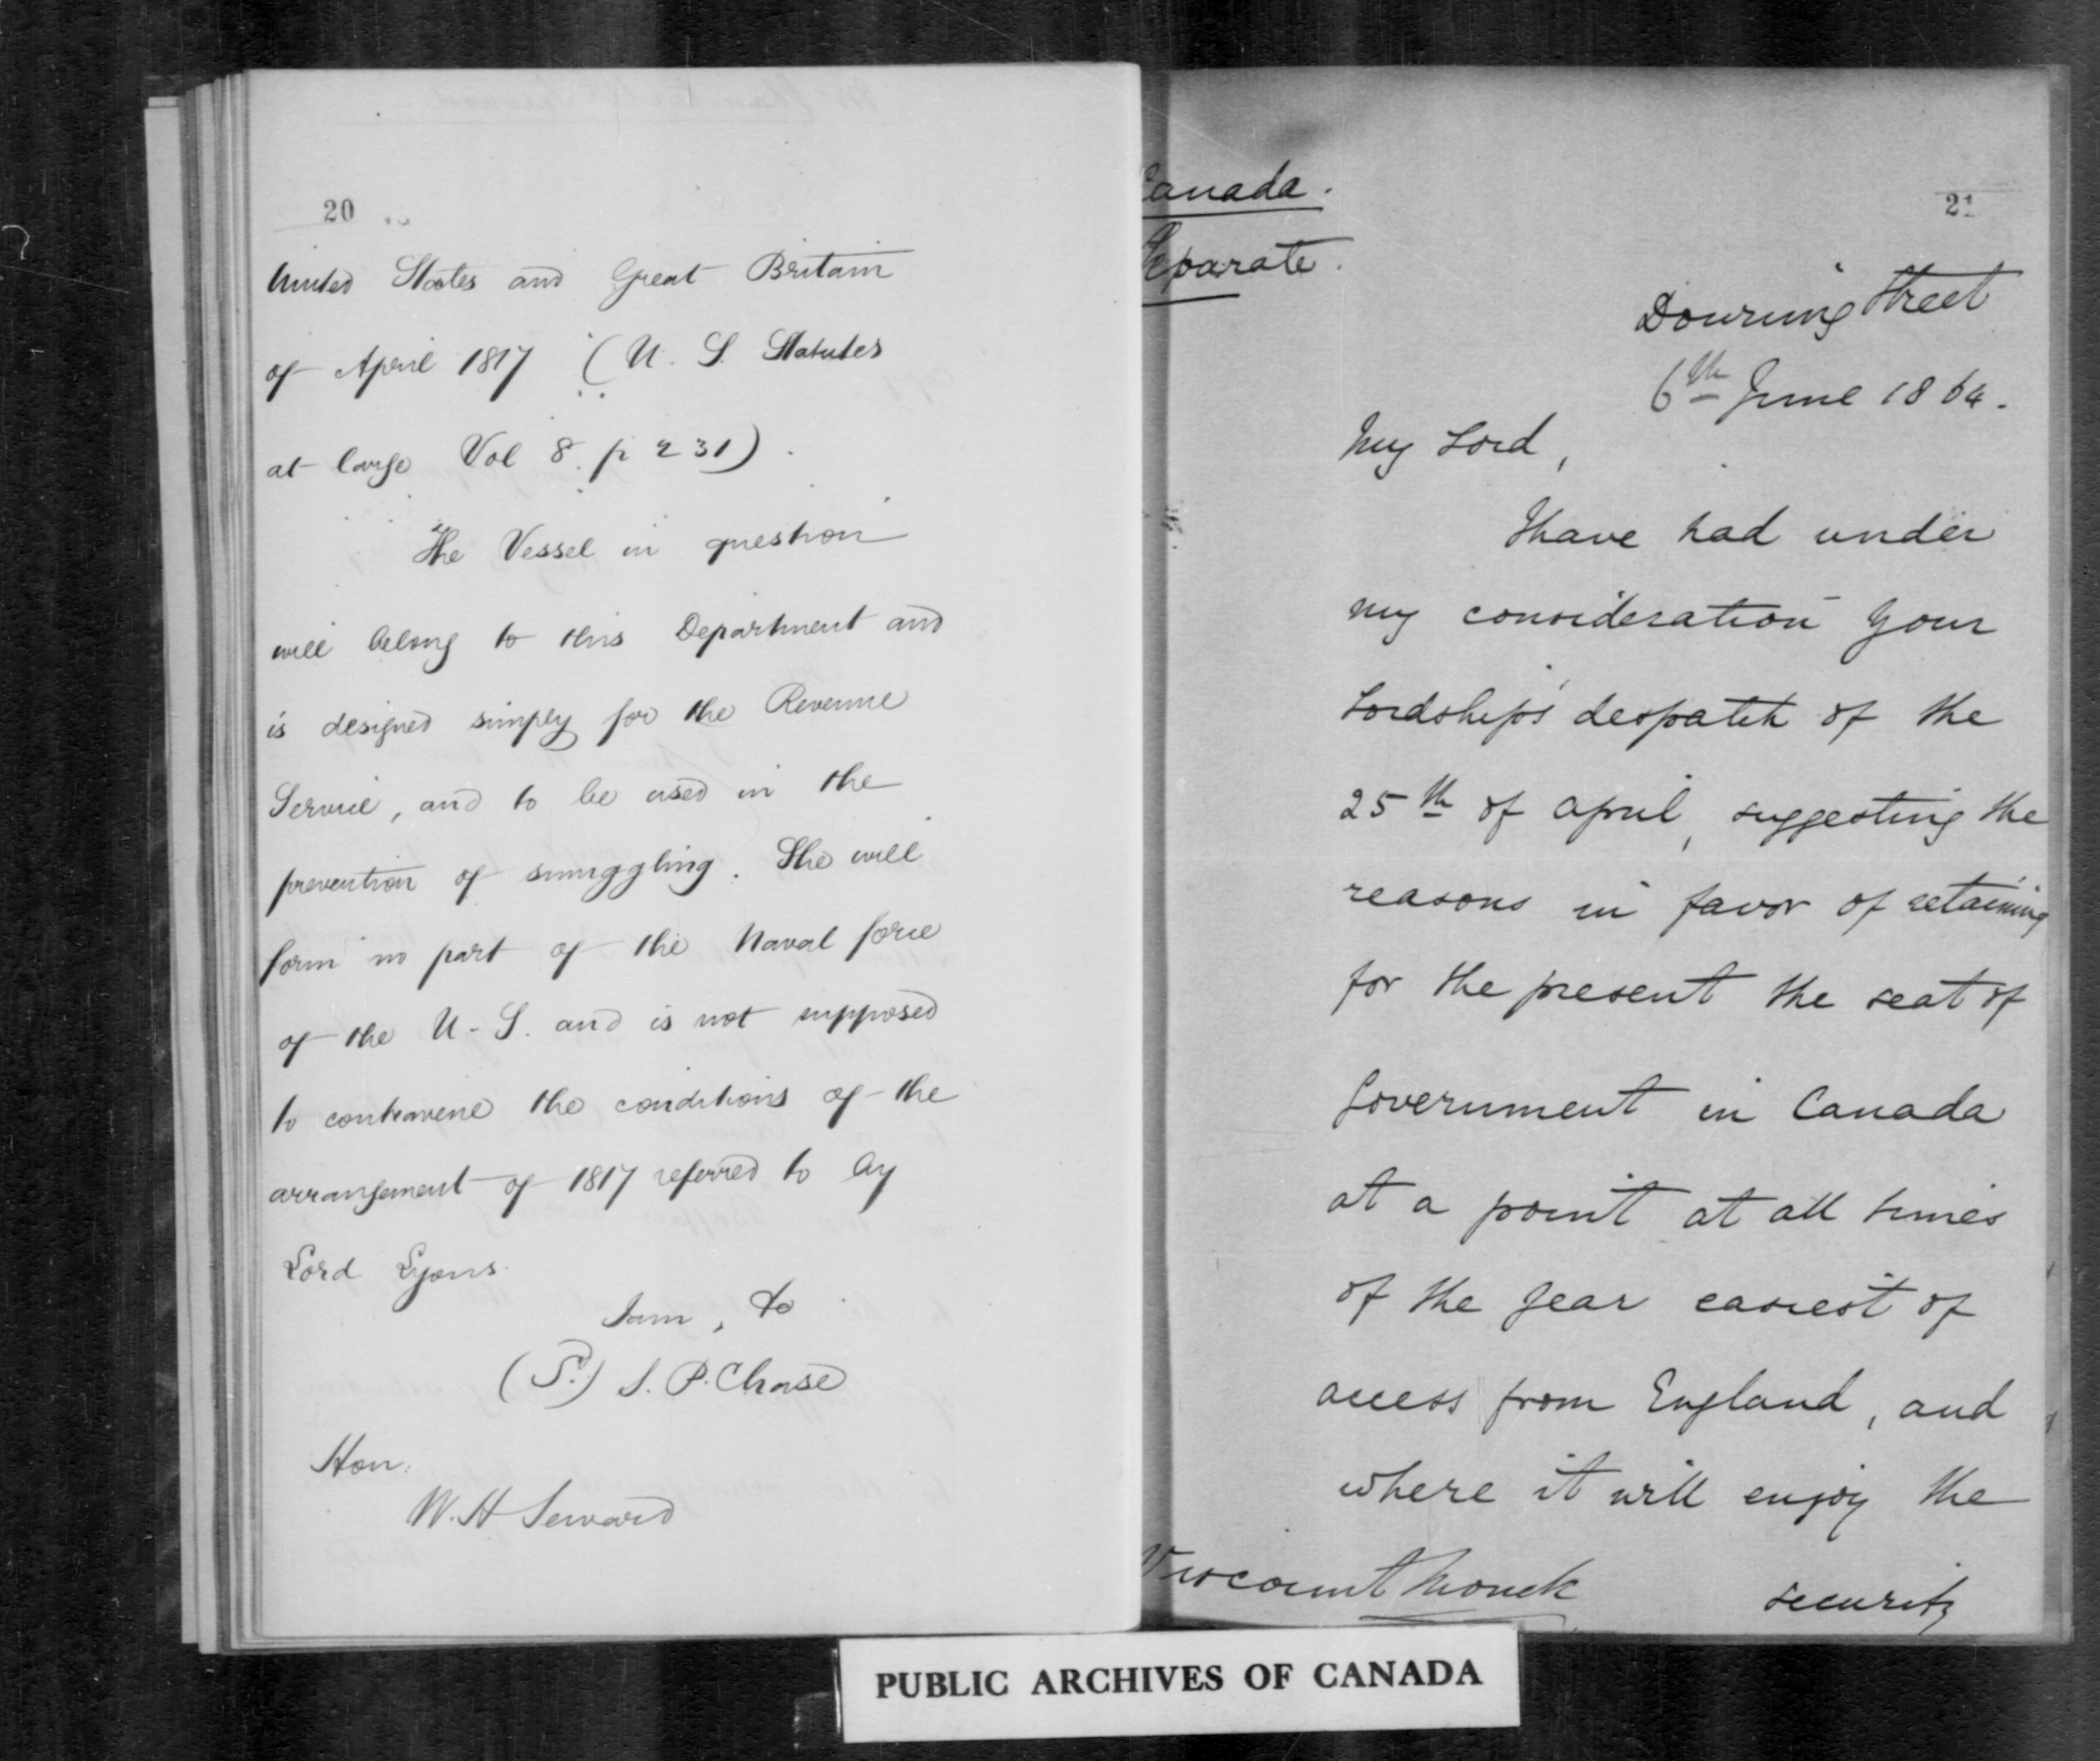 20
United States and Great Britain
of April 1817 (U. S. Statutes
at large Vol 8. p 231).
The Vessel in question
will belong to this Department and
is designed simply for the Revenue
Service, and to be used in the
prevention of smuggling. She will
form no part of the Naval force
of the U. S. and is not supposed
to contravene the conditions of the
arrangement of 1817 referred to by
Lord Lyons.
I am, &c
(S.) S. P. Chase
Hon:
W. H Seward
Canada.
21
Separate.
Downing Street
6th June 1864.
My Lord,
I have had under
my consideration Your
Lordship's despatch of the
25th of April, suggesting the
reasons in favor of retaining
for the present the seat of
Government in Canada
at a point at all times
of the year easiest of
access from England, and
where it will enjoy the
Viscount Monck
security
PUBLIC ARCHIVES OF CANADA